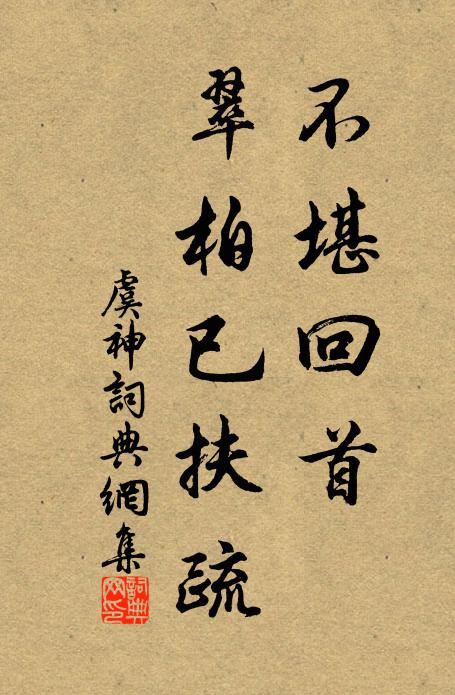 不堪回首
翠柏已扶疏
虞神詞典網集
詞典网印